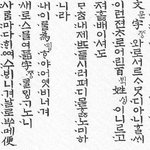 文字와로서르ᄉᆞᄆᆞᆺ디아니ᄒᆞᆯᄊᆡ
이런젼ᄎᆞ로어린百姓이니르고
져호ᇙ배이셔도
ᄆᆞᄎᆞᆷ내제ᄠᅳ들시러펴디몯ᄒᆞᇙ노미하
니라
내이ᄅᆞᆯ爲ᄒᆞ야어엿비너겨
새로스믈여듧字ᄅᆞᆯᄆᆡᇰᄀᆞ노니
사ᄅᆞᆷ마다ᄒᆡᅇᅧ수ᄫᅵ니겨날로ᄡᅮ메便